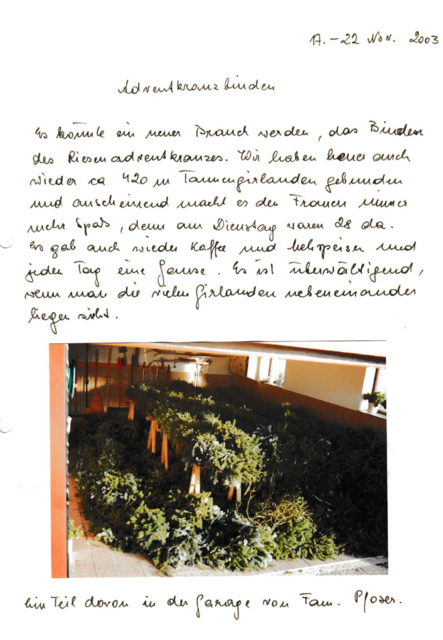 17.-22 Nov. 2003
Adventkranzbinden
Es könnte ein neuer Brauch werden, das Binden
des Riesenadventkranzes. Wir haben heuer auch
wieder ca 420 m Tannengirlanden gebunden
und anscheinend macht es den Frauen immer
mehr Spaß, denn am Dienstag waren 28 da.
Es gab auch wieder Kaffee und Mehlspeisen und
jeden Tag eine Jause. Es ist überwältigend,
wenn man die vielen Girlanden nebeneinander
liegen sieht.
Ein Teil davon in der Garage von Fam. Pfoser.